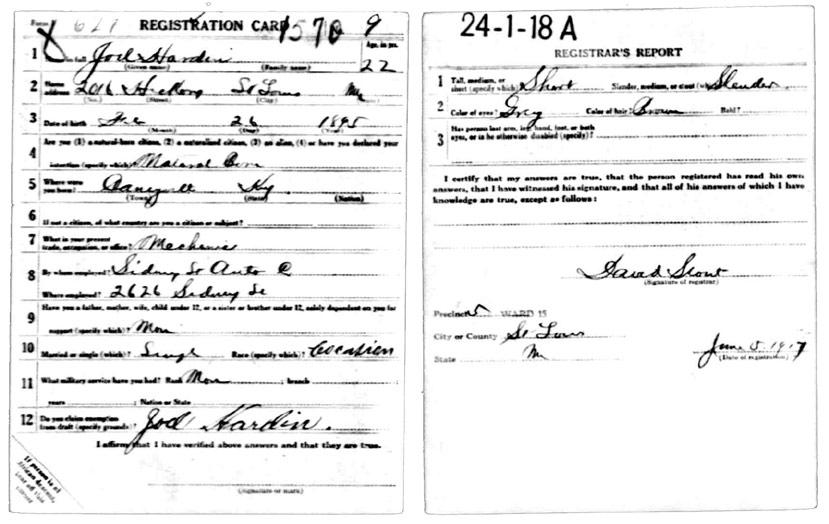 Form 627 REGISTRATION CARD 1570 9
1 In full Joel Hardin Age, in yrs. 22
(Given name) (Family name)
2 Home address 2016 Hickory St Louis Mo
(No.) (Street) (City) (State)
3 Date of birth 26 1895
(Month) (Day) (Year)
4 Are you (1) a natural-born citizen, (2) a naturalized citizen, (3) an alien, (4) or have you declared your
intention (specify which)? Natural Born
5 Where were you born? Ky
(Town) (State) (Nation)
6 If not a citizen, of what country are you a citizen or subject?
7 What is your present trade, occupation, or office? Mechanic
8 By whom employed? Sidney St Auto Co
Where employed? 2626 Sidney St
9 Have you a father, mother, wife, child under 12, or a sister or brother under 12, solely dependent on you for
support (specify which)?
10 Married or single (which)? Single Race (specify which)?
11 What military service have you had? Rank ; branch
years ; Nation or State
12 Do you claim exemption from draft (specify grounds)? Joel Hardin.
I affirm that I have verified above answers and that they are true.
(Signature or mark)
If person is of African descent, tear off this corner
24-1-18 A
REGISTRAR'S REPORT
1 Tall, medium, or short (specify which)? Short Slender, medium, or stout (which)? Slender
2 Color of eyes? Grey Color of hair? Brown Bald?
3 Has person lost arm, leg, hand, foot, or both
eyes, or is he otherwise disabled (specify)?
I certify that my answers are true, that the person registered has read his own
answers, that I have witnessed his signature, and that all of his answers of which I have
knowledge are true, except as follows:
David
(Signature of registrar)
Precinct 5 WARD 15
City or County St Louis
State Mo June 5 1917
(Date of registration)